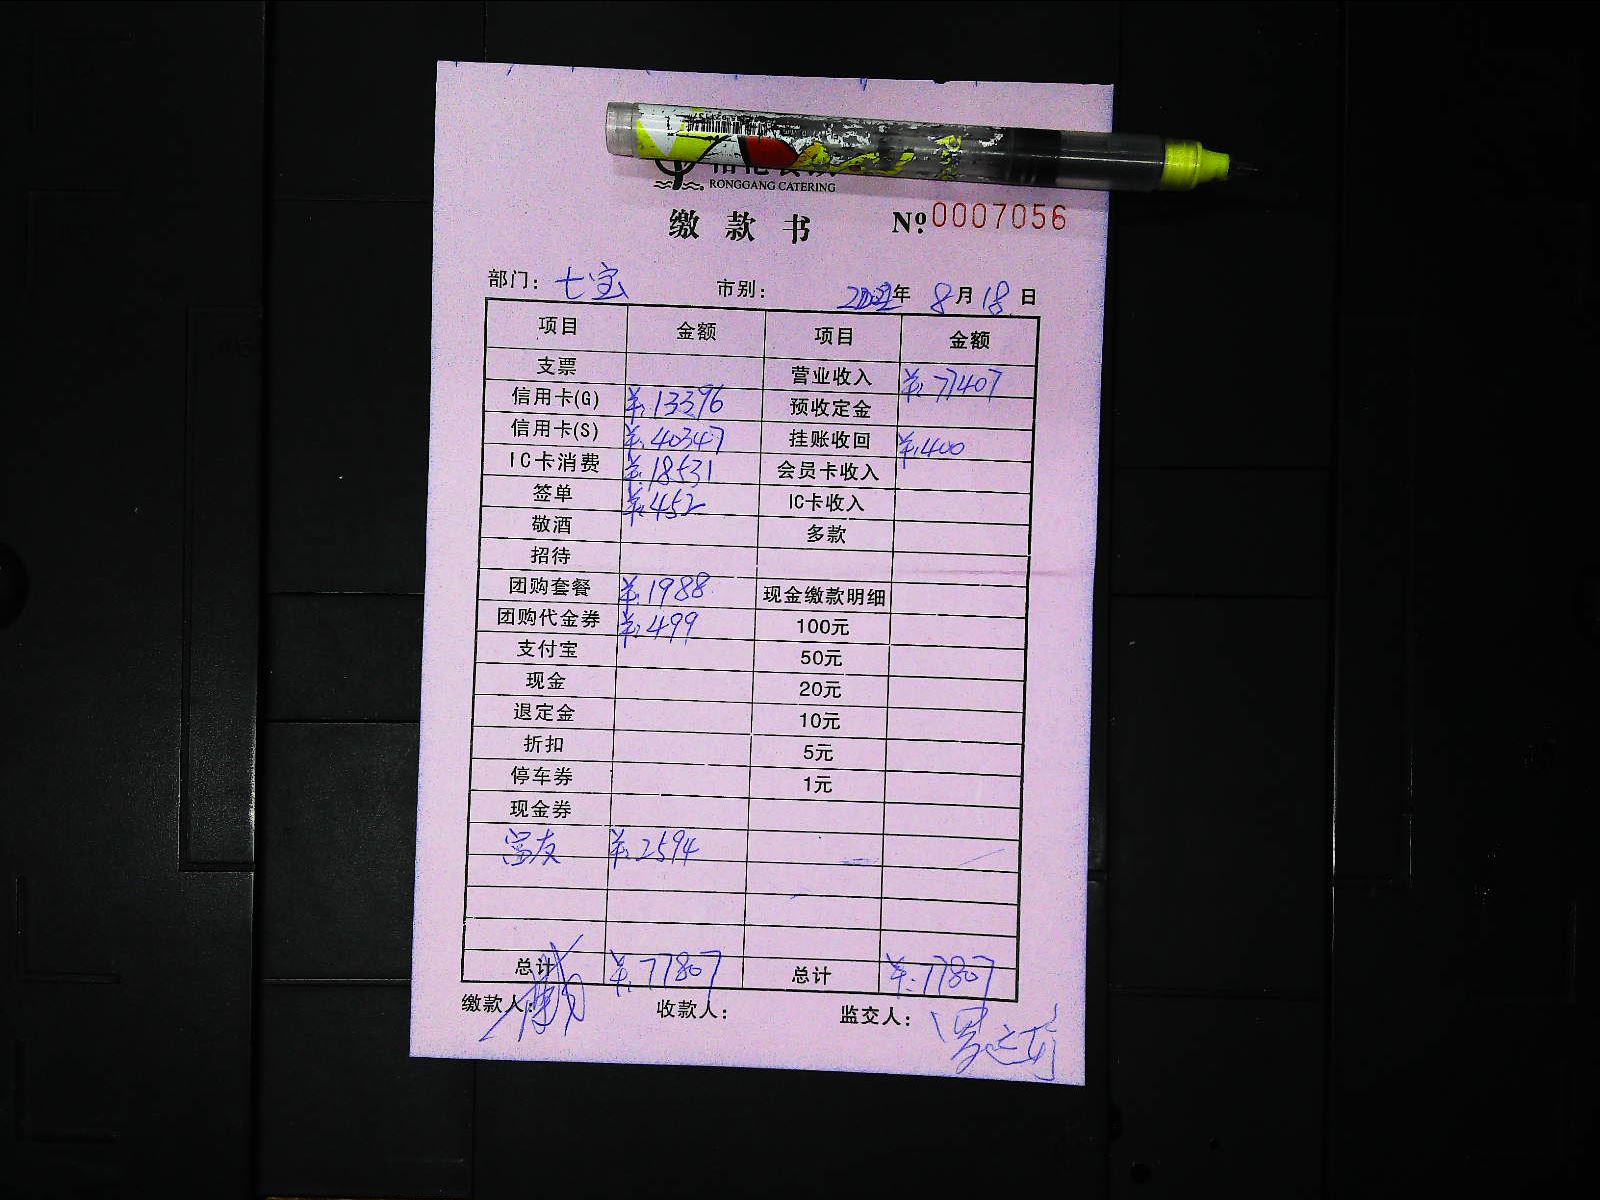 RONGGANG CATERING
缴款书 №0007056
部门: 七宝 市别: 年 8月18日
项目 金额 项目 金额
支票 营业收入 ¥:77407
信用卡(G) ¥:13396 预收定金
信用卡(S) ¥:40347 挂账收回 ¥:400
IC卡消费 ¥:18531 会员卡收入
签单 ¥:452 IC卡收入
敬酒 多款
招待
团购套餐 ¥:1988 现金缴款明细
团购代金券 ¥:499 100元
支付宝 50元
现金 20元
退定金 10元
折扣 5元
停车券 1元
现金券
富友 ¥:2594
总计 ¥:77807 总计 ¥:77807
缴款人: 收款人: 监交人: